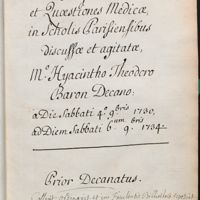 et Quæstiones Medicæ,
in Scholis Parisiensibus
discussæ et agitatæ,
M.º Hyacintho Theodoro
Baron Decano.
a Die Sabbati 4.ª 9.bris 1730.
ad Diem Sabbati 6.um 9.bris 1734.
Prior Decanatus.